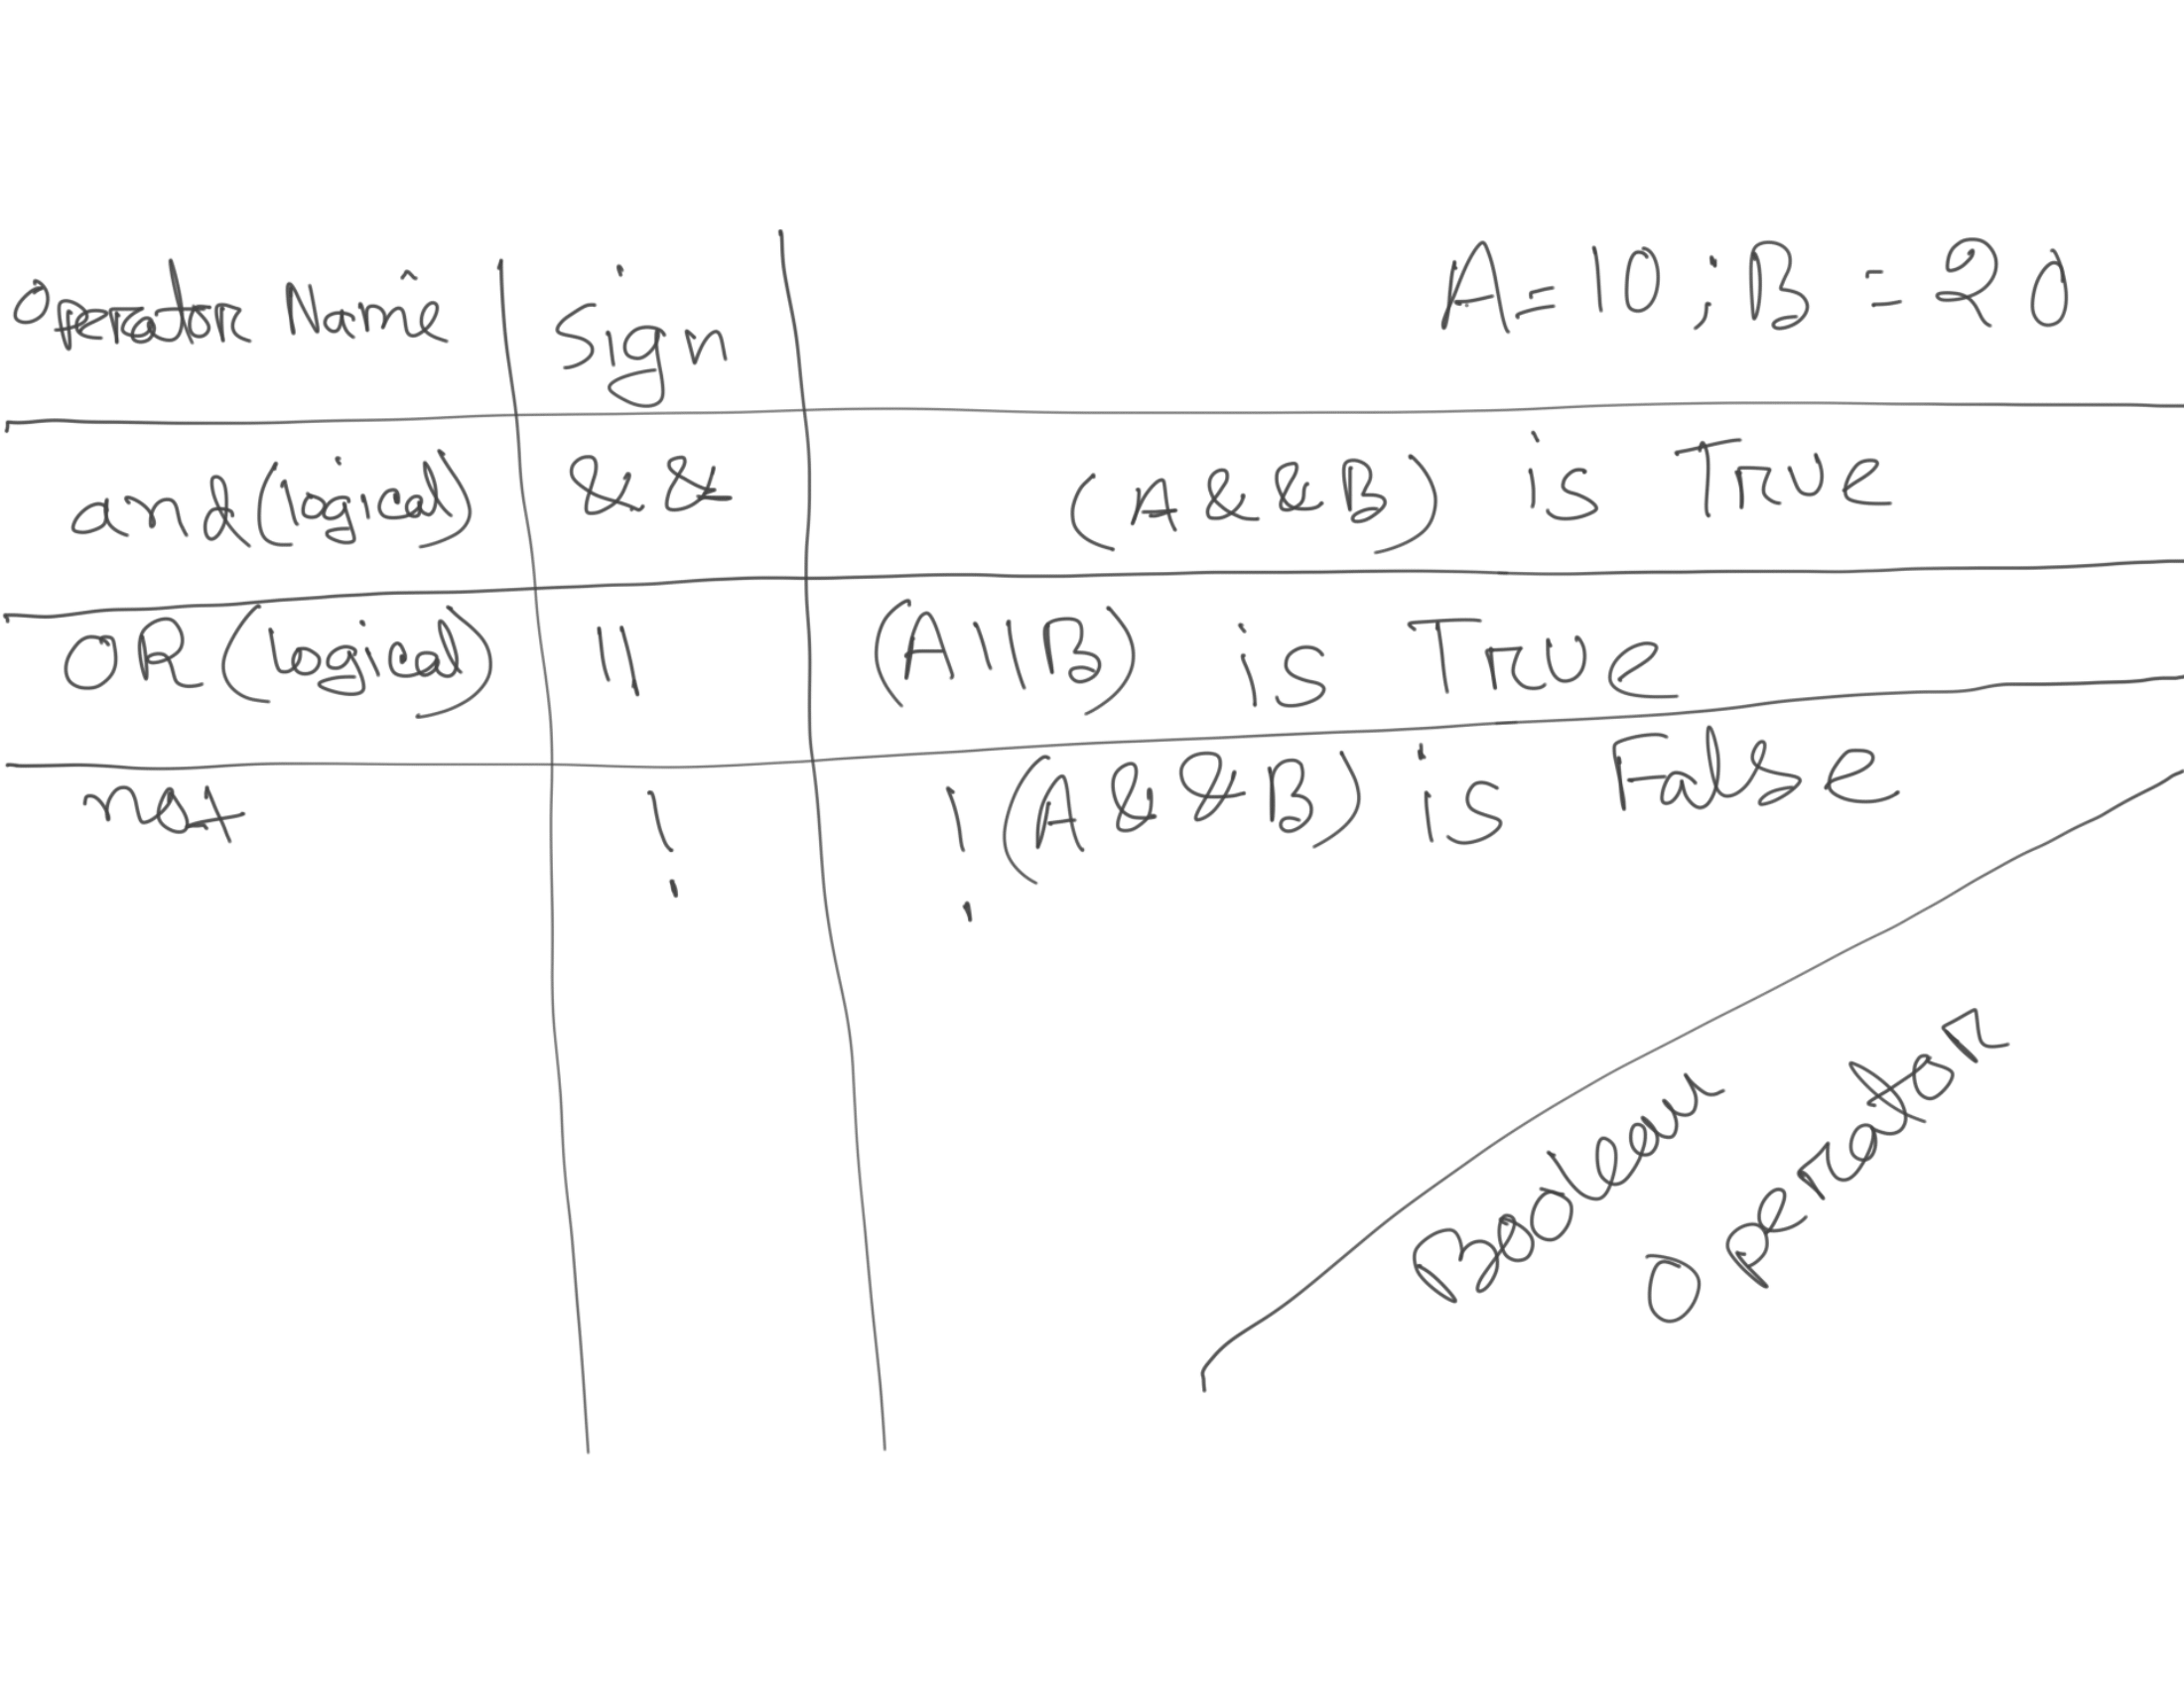 operator Name sign A = 10 ; B = 20
and (logical) && (A && B) is True
OR (logical) || (A || B) is True
not ! !(A && B) is False
Boolean
operator